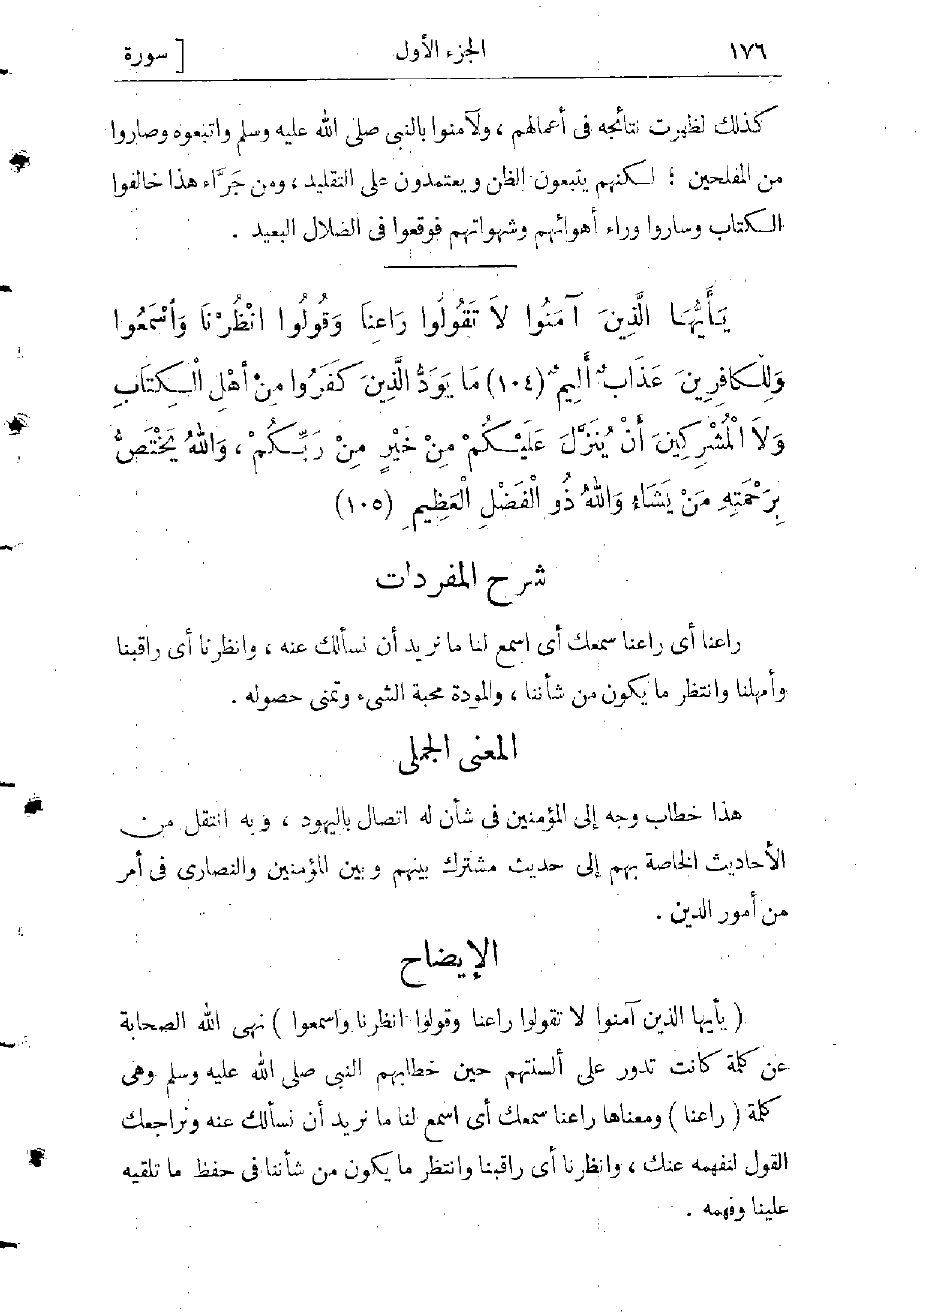 ١٧٦ الجزء الأول [ سورة
كذلك لظهرت نتائجه فى أعمالهم ، ولآمنوا بالنبى صلى الله عليه وسلم واتبعوه وصاروا
من المفلحين ؛ لكنهم يتبعون الظن ويعتمدون على التقليد ، ومن جَرَّاء هذا خالفوا
الكتاب وساروا وراء أهوائهم وشهواتهم فوقعوا فى الضلال البعيد .
يَأَيُّهَا الَّذِينَ آمَنُوا لَا تَقُولُوا رَاعِنَا وَقُولُوا انْظُرْنَا وَأسْمَعُوا
وَلِلْكَافِرِينَ عَذَابٌ أَلِيمٌ (١٠٤) مَا يَوَدُّ الَّذِينَ كَفَرُوا مِنْ أَهْلِ الْكِتَابِ
وَلَا الْمُشْرِكِينَ أَنْ يُنَزَّلَ عَلَيْكُمْ مِنْ خَيْرٍ مِنْ رَبِّكُمْ ، وَاللهُ يَخْتَصُّ
بِرَحْمَتِهِ مَنْ يَشَاءُ وَاللهُ ذُو الْفَضْلِ الْعَظِيمِ (١٠٥)
شرح المفردات
راعنا أى راعنا سمعك أى اسمع لنا ما نريد أن نسألك عنه ، وانظرنا أى راقبنا
وأمهلنا وانتظر ما يكون من شأننا ، والمودة محبة الشىء وتمنى حصوله .
المعنى الجملى
هذا خطاب وجه إلى المؤمنين فى شأن له اتصال باليهود ، وبه انتقل من
الأحاديث الخاصة بهم إلى حديث مشترك بينهم وبين المؤمنين والنصارى فى أمر
من أمور الدين .
الإيضاح
( يأيها الذين آمنوا لا تقولوا راعنا وقولوا انظرنا واسمعوا ) نهى الله الصحابة
عن كلمة كانت تدور على ألسنتهم حين خطابهم النبى صلى الله عليه وسلم وهى
كلمة ( راعنا ) ومعناها راعنا سمعك أى اسمع لنا ما نريد أن نسألك عنه ونراجعك
القول لنفهمه عنك ، وانظرنا أى راقبنا وانتظر ما يكون من شأننا فى حفظ ما تلقيه
علينا وفهمه .